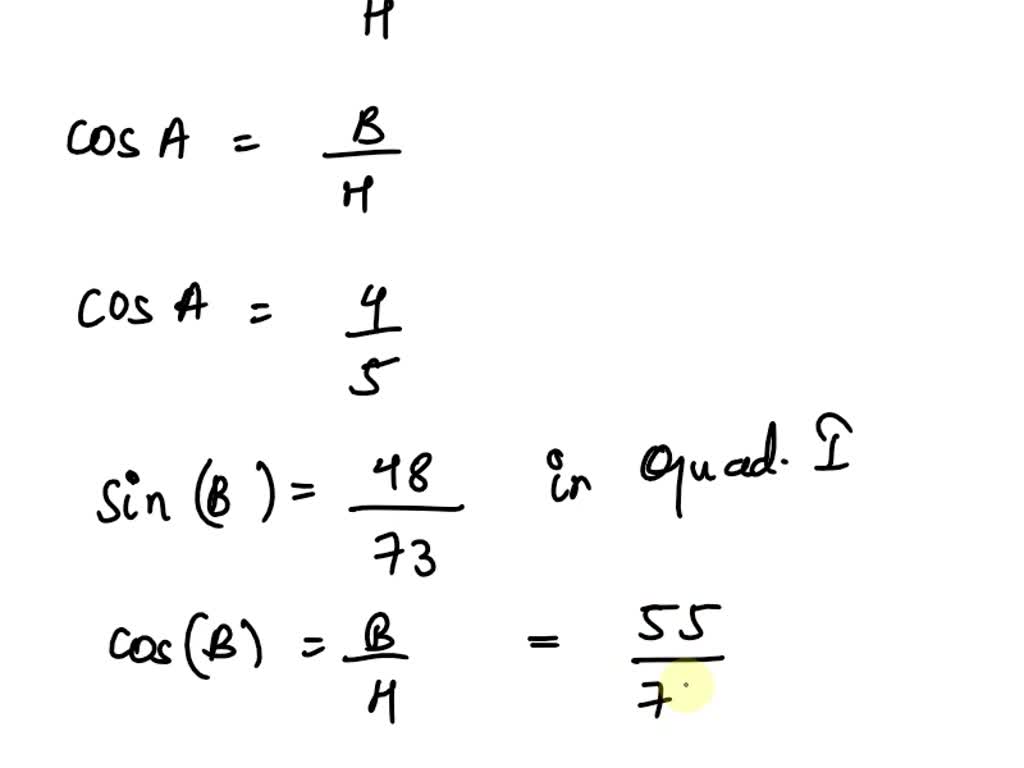 H
cos A = B
H
cos A = 4
5
sin (B) = 48 in quad. I
73
cos (B) = B = 55
H 7